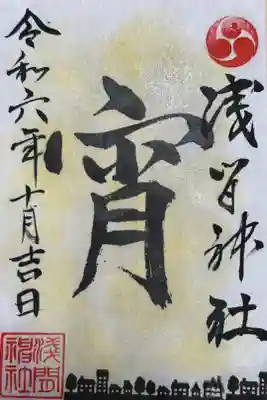 浅間神社
宵
令和六年十月吉日
浅間
神社